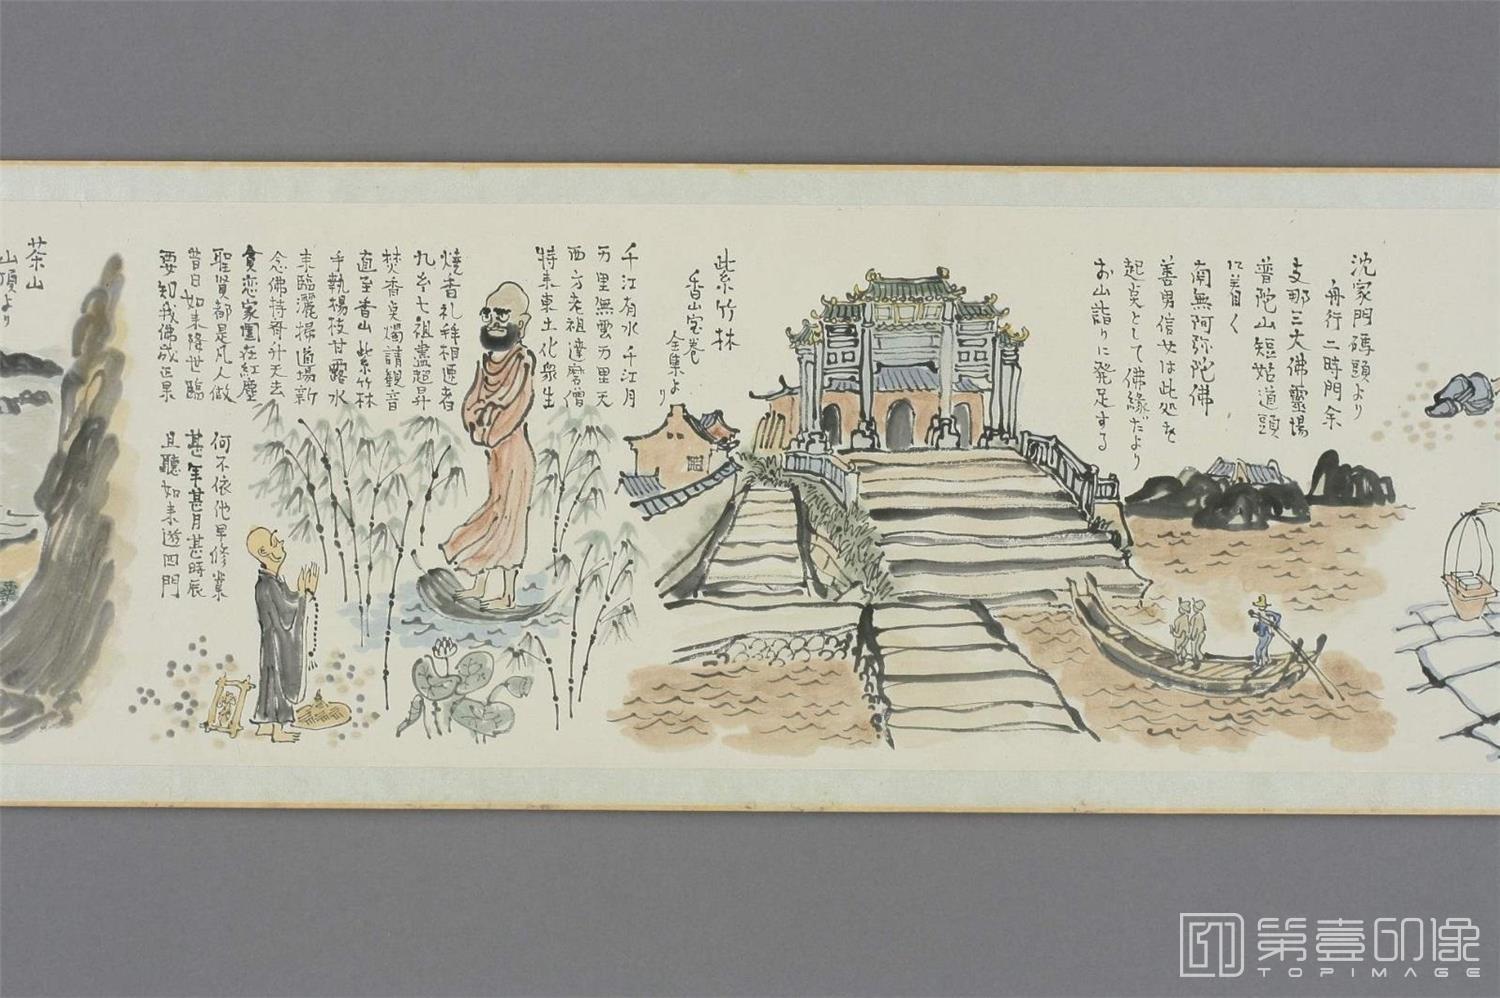 沈家門磚頭より
舟行二時門余
支那三大佛靈場
普陀山短姑道頭
に着く
南無阿弥陀佛
善男信女は此処を
起点として佛縁だより
お山詣りに発足する
紫竹林
香山宝巻
全集より
千江有水千江月
万里無雲万里天
西方老祖達磨僧
特来東土化衆生
燒香礼拜相逢者
九玄七祖盡超昇
焚香点燭請観音
直至香山紫竹林
手執楊枝甘露水
来臨灑掃道場新
念佛持齊升天去
貪恋家園在紅塵
聖賢都是凡人做
何不依他早修業
昔日如来降世臨
甚年甚月甚時辰
要知我佛成正果
且聽如来遊四門
茶山
山頂より
第壹印像
TOPIMAGE